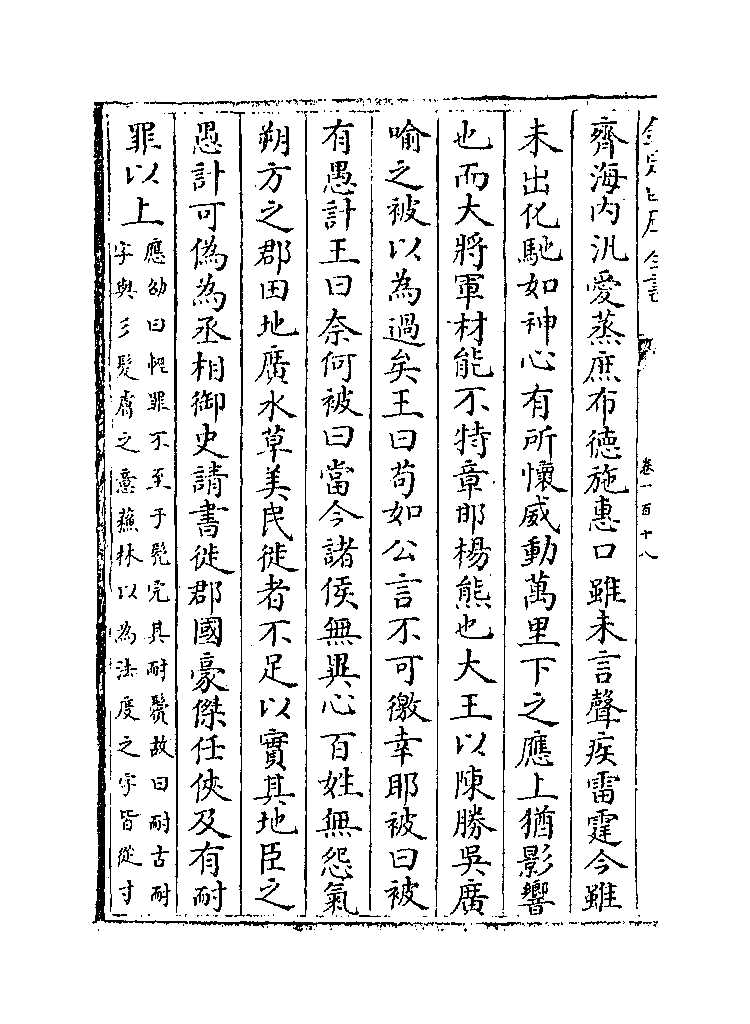 卷一百十八
齊海内汎愛蒸庶布徳施惠口雖未言聲疾雷霆今雖
未出化馳如神心有所懷威動萬里下之應上猶影響
也而大將軍材能不特章邯楊熊也大王以陳勝吳廣
喻之被以為過矣王曰苟如公言不可徼幸耶被曰被
有愚計王曰奈何被曰當今諸侯無異心百姓無怨氣
朔方之郡田地廣水草美民徙者不足以實其地臣之
愚計可偽為丞相御史請書徙郡國豪傑任俠及有耐
罪以上應劭曰輕罪不至于髡完其耐鬢故曰耐古耐
字與彡髮膚之意蘇林以為法度之字皆從寸